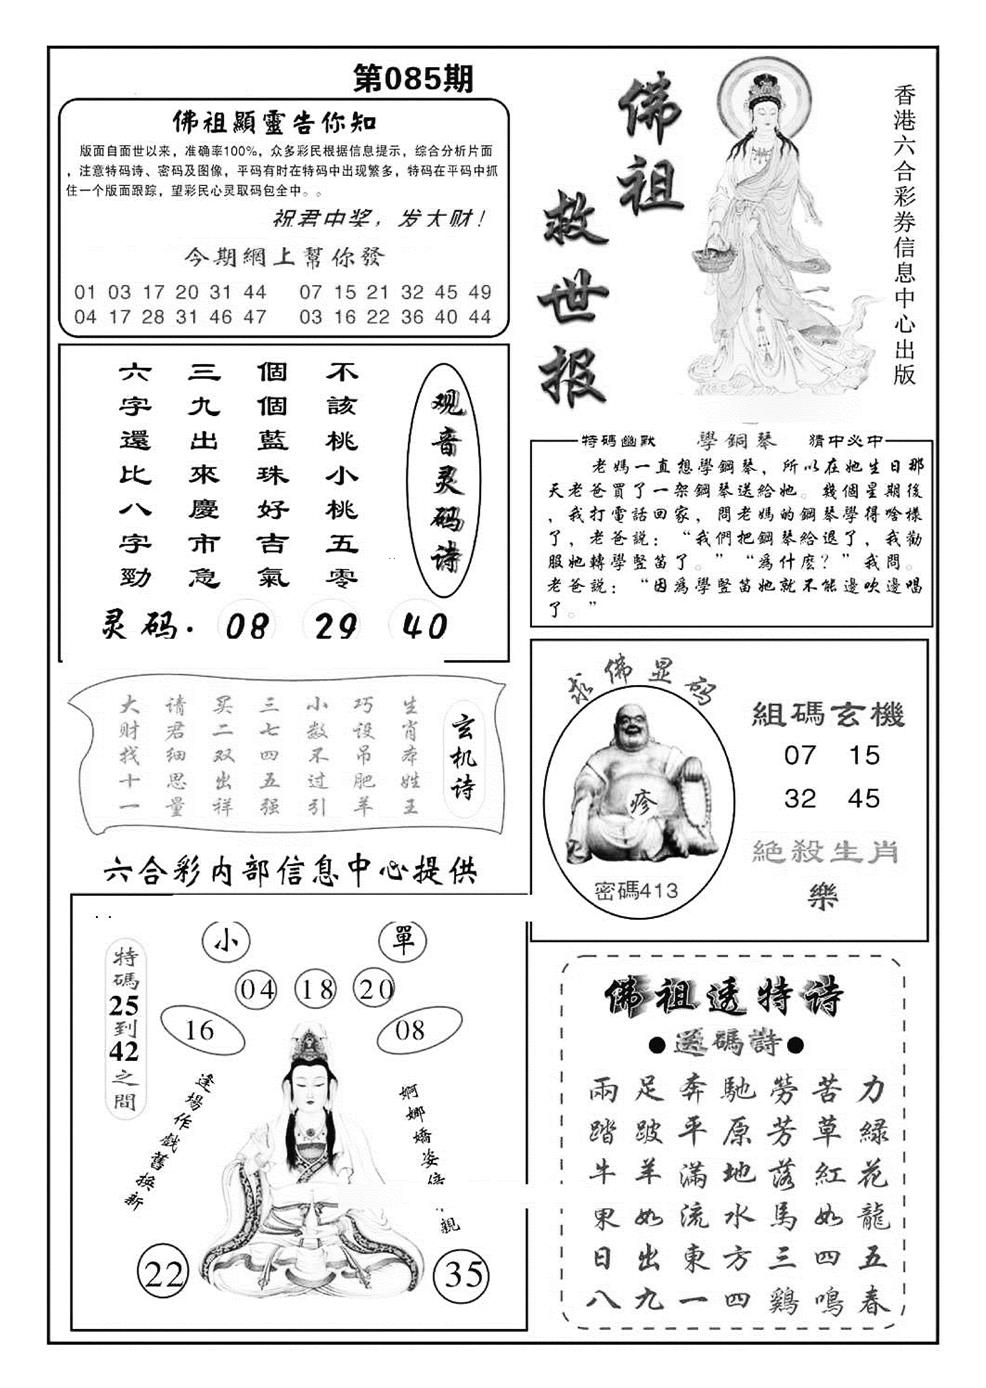 第085期
佛祖顯靈告你知
版面自面世以来，准确率100%，众多彩民根据信息提示，综合分析片面
，注意特码诗、密码及图像，平码有时在特码中出现繁多，特码在平码中抓
住一个版面跟踪，望彩民心灵取码包全中。。
祝君中奖，发大财！
今期網上幫你發
01 03 17 20 31 44 07 15 21 32 45 49
04 17 28 31 46 47 03 16 22 36 40 44
佛祖
救世报
香港六合彩券信息中心出版
观音灵码诗
不該桃小桃五零
個個藍珠好吉氣
三九出來慶市急
六字還比八字勁
灵码. 08 29 40
特碼幽默 學鋼琴 猜中必中
老媽一直想學鋼琴，所以在她生日那
天老爸買了一架鋼琴送給她。幾個星期後
，我打電話回家，問老媽的鋼琴學得啥樣
了，老爸説：“我們把鋼琴給退了，我勸
服她轉學竪笛了。”“爲什麽？”我問。
老爸説：“因爲學竪笛她就不能邊吹邊唱
了。”
玄机诗
生肖本姓王
巧设吊肥羊
小数不过引
三七四五强
买二双出祥
请君细思量
大财找十一
求佛显码
疹
密碼413
組碼玄機
07 15
32 45
絕殺生肖
樂
六合彩内部信息中心提供
特碼25到42之間
小 單
04 18 20
16 08
逢場作戲舊換新
婀娜嬌姿
親
22 35
佛祖透特诗
●送碼詩●
兩足奔馳勞苦力
踏跛平原芳草緑
牛羊滿地落紅花
果如流水馬如龍
日出東方三四五
八九一四鷄鳴春